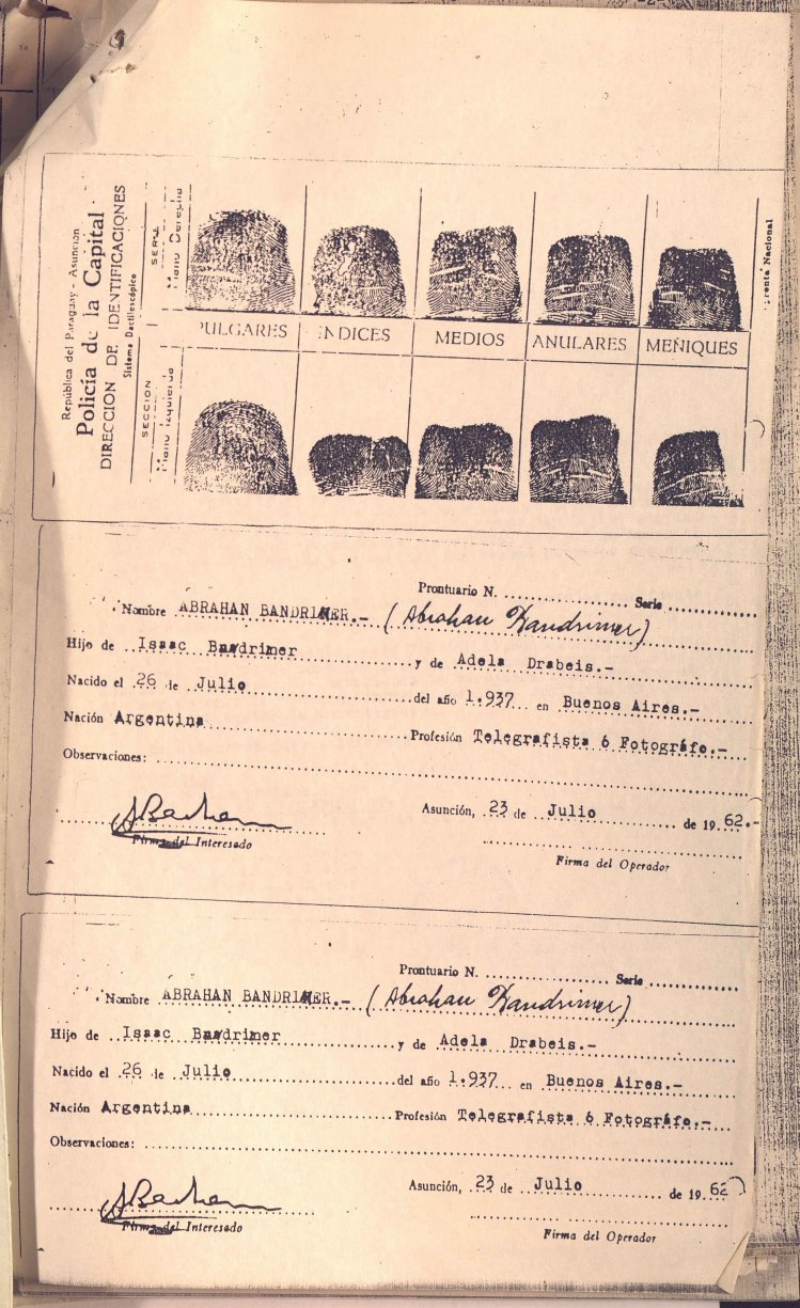 República del Paraguay - Asunción
Policía de la Capital
DIRECCION DE IDENTIFICACIONES
Sistema Dactiloscópico
SECCION SERIE
Mano Izquierda Mano Derecha
PULGARES INDICES MEDIOS ANULARES MEÑIQUES
Nacional
Prontuario N. Serie
Nombre ABRAHAN BANDRIMER.- (Abrahan Bandrimer)
Hijo de Isaac Bandrimer y de Adela Drabeis.-
Nacido el 26 de Julio del año 1.937 en Buenos Aires.-
Nación Argentina Profesión Telegrafista ó Fotográfo.-
Observaciones:
Asunción, 23 de Julio de 19 62.-
Firma del Interesado
Firma del Operador
Prontuario N. Serie
Nombre ABRAHAN BANDRIMER.- (Abrahan Bandrimer)
Hijo de Isaac Bandrimer y de Adela Drabeis.-
Nacido el 26 de Julio del año 1.937 en Buenos Aires.-
Nación Argentina Profesión Telegrafista ó Fotográfo.-
Observaciones:
Asunción, 23 de Julio de 19 62
Firma del Interesado
Firma del Operador